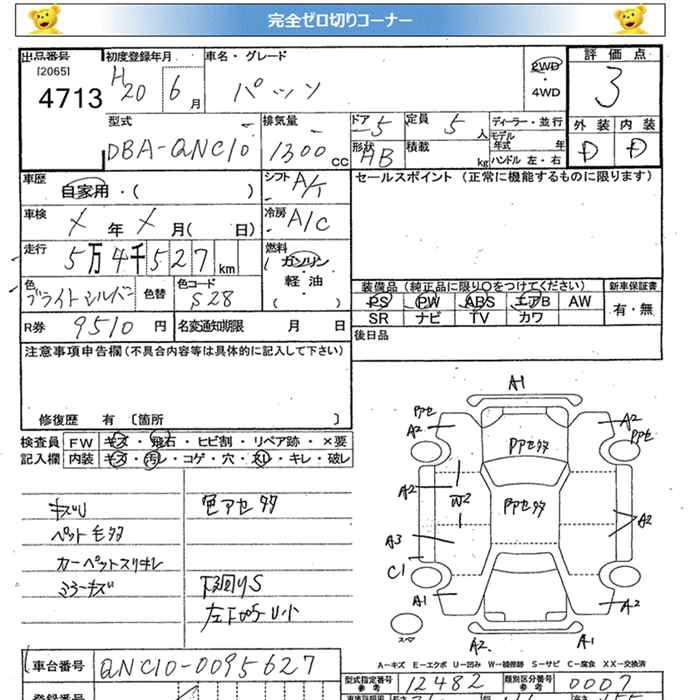 完全ゼロ切りコーナー
出品番号 初度登録年月 車名・グレード 評価点
[2065]
4713 H20 6月 パッソ 2WD 4WD 3
型式 排気量 ドア 5 定員 5人 ディーラー・並行 外装 内装
モデル年式 年
DBA-QNC10 1300cc 形状 HB 積載 kg ハンドル 左・右 D D
車歴 自家用・( ) シフト A/T セールスポイント (正常に機能するものに限ります)
車検 X年X月( 日) 冷房 A/C
走行 5万4千527km 燃料 ガソリン
軽油
( )
色 ブライトシルバー 色替 色コード S28 装備品 (純正品に限り○をつけてください) 新車保証書
PS PW ABS エアB AW 有・無
SR ナビ TV カワ
R券 9510円 名変通知期限 月 日 後日品
注意事項申告欄(不具合内容等は具体的に記入して下さい)
修復歴 有 〔箇所 〕
検査員 FW キズ・飛石・ヒビ割・リペア跡・×要
記入欄 内装 キズ・汚レ・コゲ・穴・スレ・キレ・破レ
キズU 色アセタタ
ペットモタタ
カーペットスリキレ
ミラーキズ 下回りS
左下 U小
A1
アセ A2 A2 アセ
アセタタ
A2 W2 アセタタ A2
A3
C1
A1 A2
スペア A2 A1
A-キズ E-エクボ U-凹み W-補修跡 S-サビ C-腐食 XX-交換済
車台番号 QNC10-0095627 型式指定番号 参考 12482 類別区分番号 参考 0007
登録番号